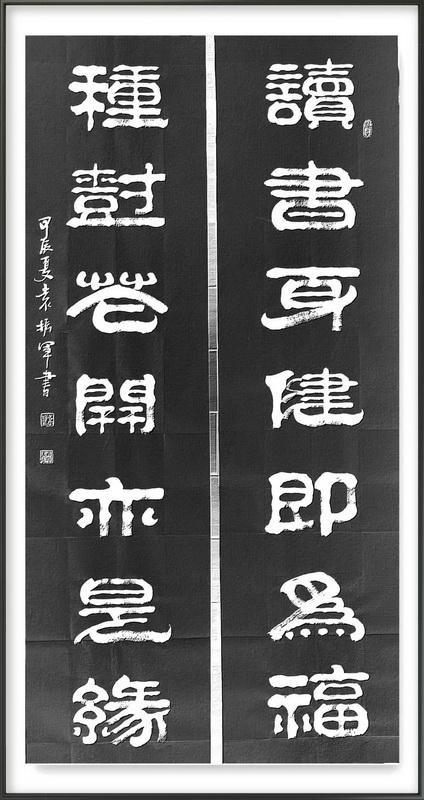 讀書身健即爲福
種尌花開亦是緣
甲辰夏袁振軍書